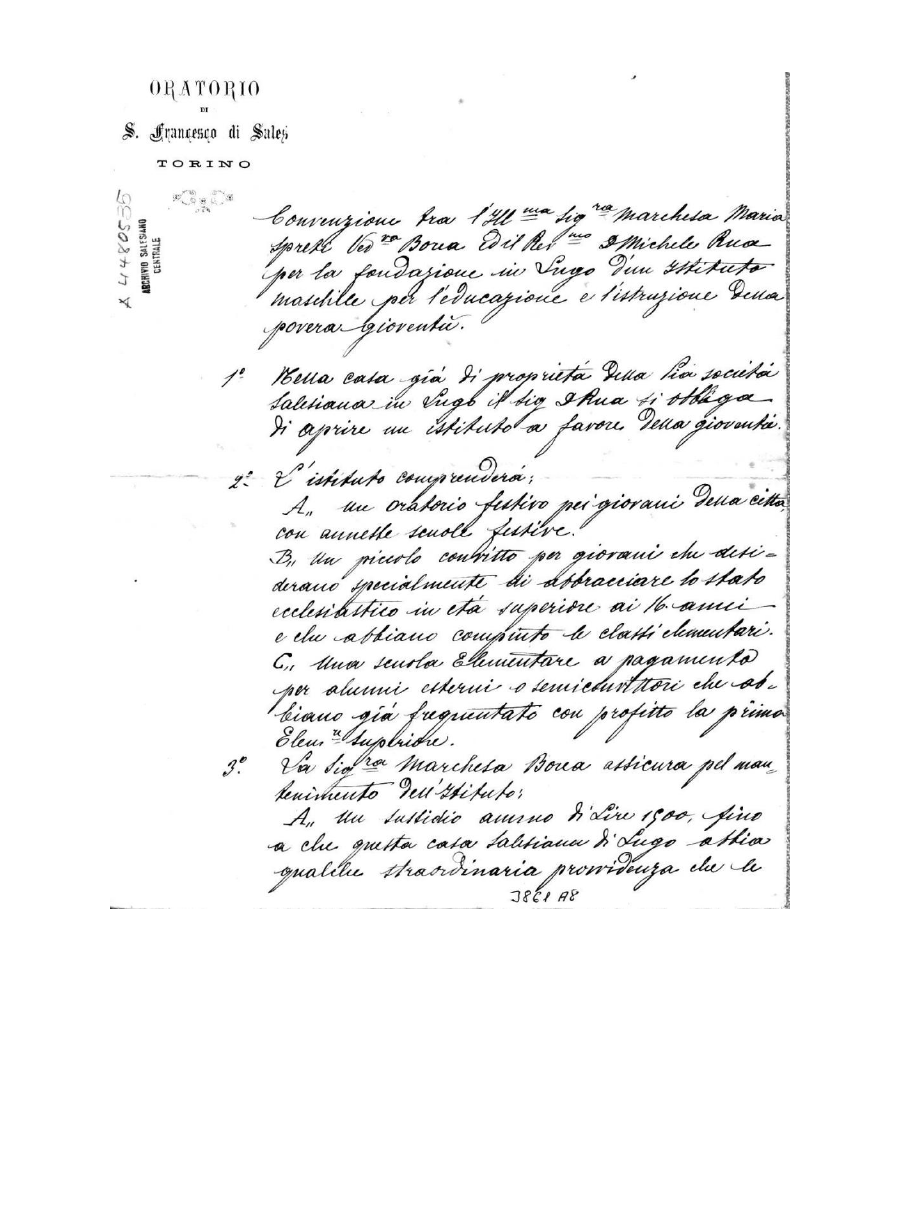 ORATORIO
DI
S. Francesco di Sales
TORINO
A 4480535
ARCHIVIO SALESIANO
CENTRALE
Convenzione tra l'Ill ma Sig ra Marchesa Maria
Spreti Ved va Borea Ed il Rev mo D Michele Rua
per la fondazione in Lugo D'un Istituto
maschile per l'educazione e l'istruzione Della
povera gioventù.
1º Nella casa già di proprietà Della Pia società
Salesiana in Lugo il Sig D Rua si obbliga
di aprire un istituto a favore Della gioventù.
2º L'istituto comprenderà;
A,, un oratorio festivo pei giovani Della città,
con annesse scuole festive.
B,, Un piccolo convitto per giovani che desi-
derano specialmente di abbracciare lo stato
ecclesiastico in età superiore ai 16 anni
e che abbiano compiuto le classi elementari.
C,, Una scuola Elementare a pagamento
per alunni esterni o semiconvittori che ab-
biano già frequentato con profitto la prima
Elem re superiore.
3º La Sig ra Marchesa Borea assicura pel man-
tenimento Dell'Istituto;
A,, Un sussidio annuo di Lire 1500, fino
a che questa casa Salesiana di Lugo abbia
qualche straordinaria provvidenza che le
3861 A8